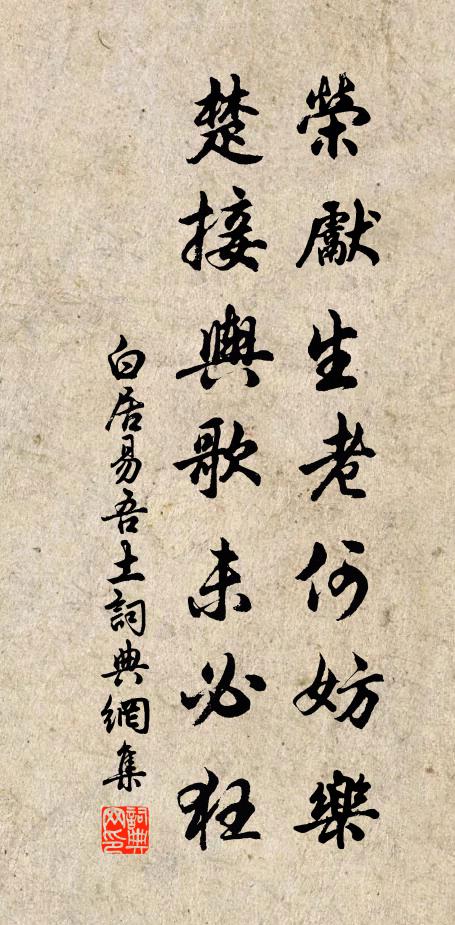 榮獻生老何妨樂
楚接輿歌未必狂
白居易吾土詞典網集
詞典網印